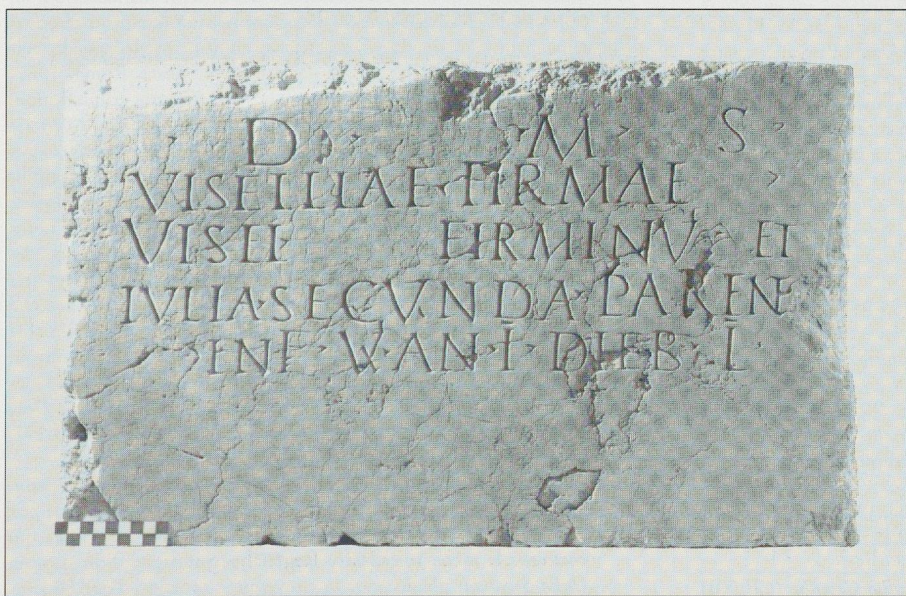 D M S
VISELLIAE·FIRMAE
VISELL FIRMINV ET
IVLIA·SECVNDA·PAREN
INF·V·AN·Ī·DIEB·Ī·